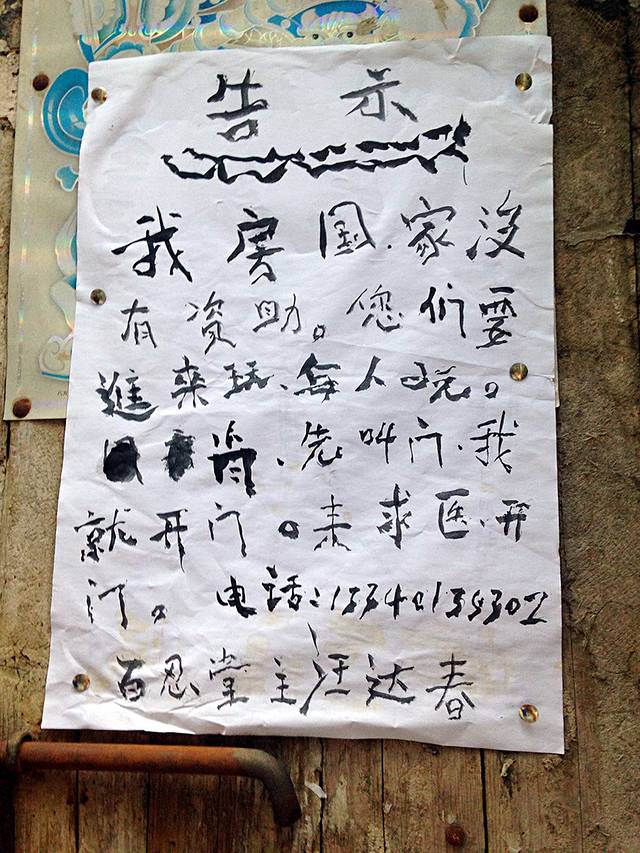 告示
我房国.家没
有资助。您们要
進来玩.無人说。
先叫门.我
就开门。来求医.开
门。电话:
百忍堂主汪达春